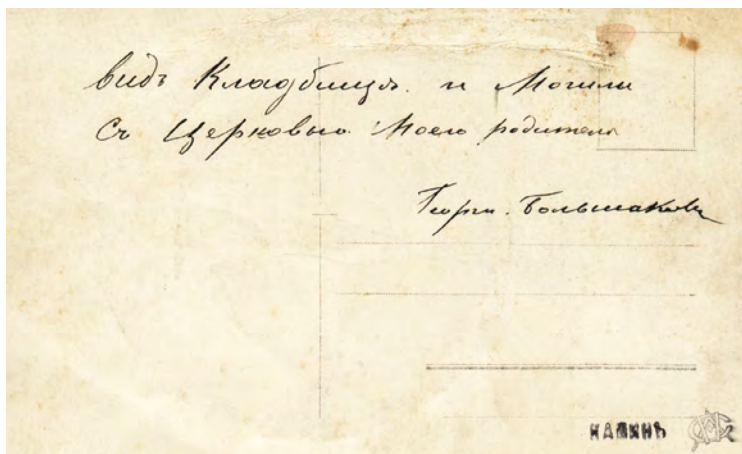 видъ Кладбища. и Могили
Съ Церковью Моего родителя
Георги. Большаковъ